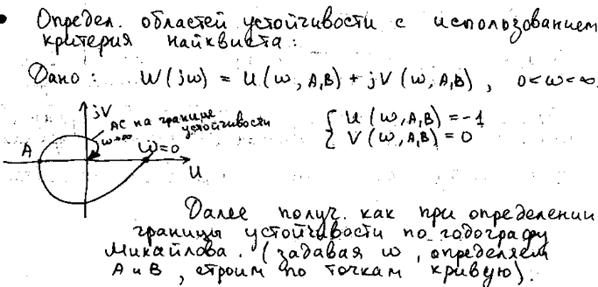 • Определ. областей устойчивости с использованием
критерия найквиста:
Дано: W(jω) = U(ω,A,B) + jV(ω,A,B), 0<ω<∞.
jV
АС на границе
устойчивости
ω→∞
A
ω=0
U
{ U(ω,A,B) = -1
V(ω,A,B) = 0
Далее получ. как при определении
границы устойчивости по годографу
Михайлова. (задавая ω, определяем
А и В, строим по точкам кривую).